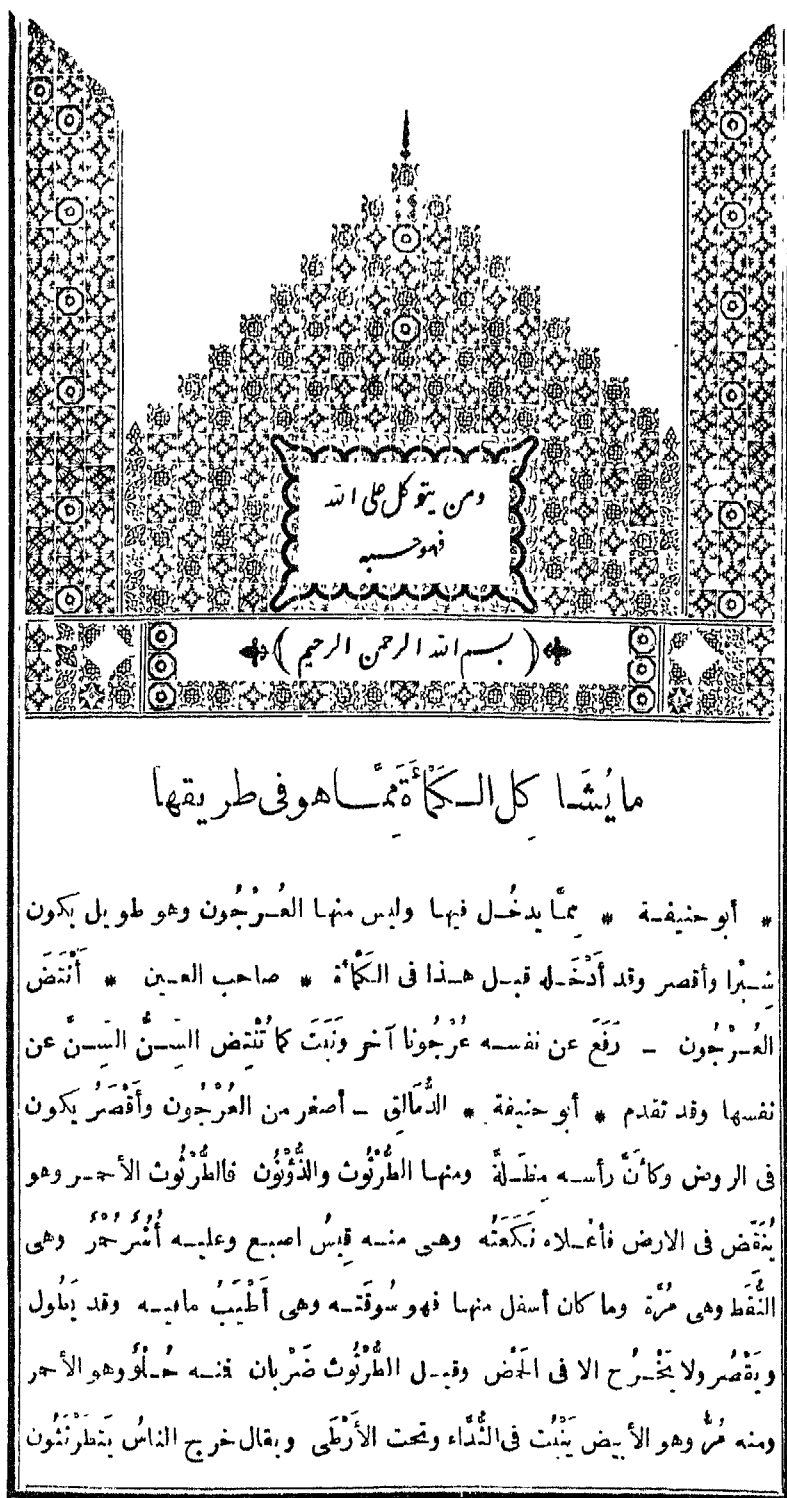 ومن يتوكل على الله
فهو حسبه
(بسم الله الرحمن الرحيم)
ما يُشَاكِل الكَمْأَةَ مِمَّا هو فى طريقها
* أبو حنيفة * مِمَّا يدخُل فيها وليس منها العُرْجُون وهو طويل يكون
شِبْرا وأقصر وقد أَدْخَله قبل هذا فى الكَمْأة * صاحب العين * أَنْتَضَ
العُرْجُون - رَفَعَ عن نفسه عُرْجُونا آخر ونَبَتَ كما تُنْتِض السِنُّ السِنَّ عن
نفسها وقد تقدم * أبو حنيفة * الدُّمَالِق - أصغر من العُرْجُون وأَقْصَرُ يكون
فى الروض وكأنَّ رأسه مِظَلَّةٌ ومنها الطُرْثُوث والذُّؤْنُون فالطُّرْثُوث الأحمر وهو
يُنَقِّض فى الارض فأعْلاه نَكَعَتُه وهى منه قِيسُ اصبع وعليه أُشَرٌ حُمْرٌ وهى
النُّقَط وهى مُرَّة وما كان أسفل منها فهو سُوقَته وهى أَطْيَبُ ما فيه وقد يَطُول
ويَقْصُر ولا يَخْرُج الا فى الحَمْض وقيل الطُّرْثُوث ضَرْبان فمنه حُلْوٌ وهو الأحمر
ومنه مُرٌّ وهو الأبيض يَنْبُت فى الثُّدَّاء وتحت الأَرْطَى ويقال خرج الناسُ يَتَطَرْثَثُون